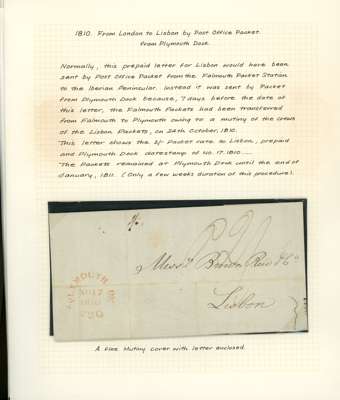 1810. From London to Lisbon by Post Office Packet
from Plymouth Dock.
Normally, this prepaid letter for Lisbon would have been
sent by Post Office Packet from the Falmouth Packet Station
to the Iberian Peninsular. Instead it was sent by Packet
from Plymouth Dock because, 7 days before the date of
this letter, the Falmouth Packets had been transferred
from Falmouth to Plymouth owing to a mutiny of the crews
of the Lisbon Packets, on 24th October, 1810.
This letter shows the 2/- Packet rate to Lisbon, prepaid
and Plymouth Dock datestamp of No. 17. 1810.
The Packets remained at Plymouth Dock until the end of
January, 1811. (Only a few weeks duration of this procedure).
PLYMOUTH
NO 17
1810
Messrs
Lisbon
A fine Mutiny cover with letter enclosed.